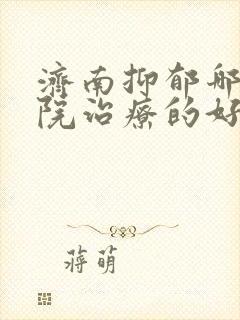 济南抑郁哪
院治疗的好
蒋萌